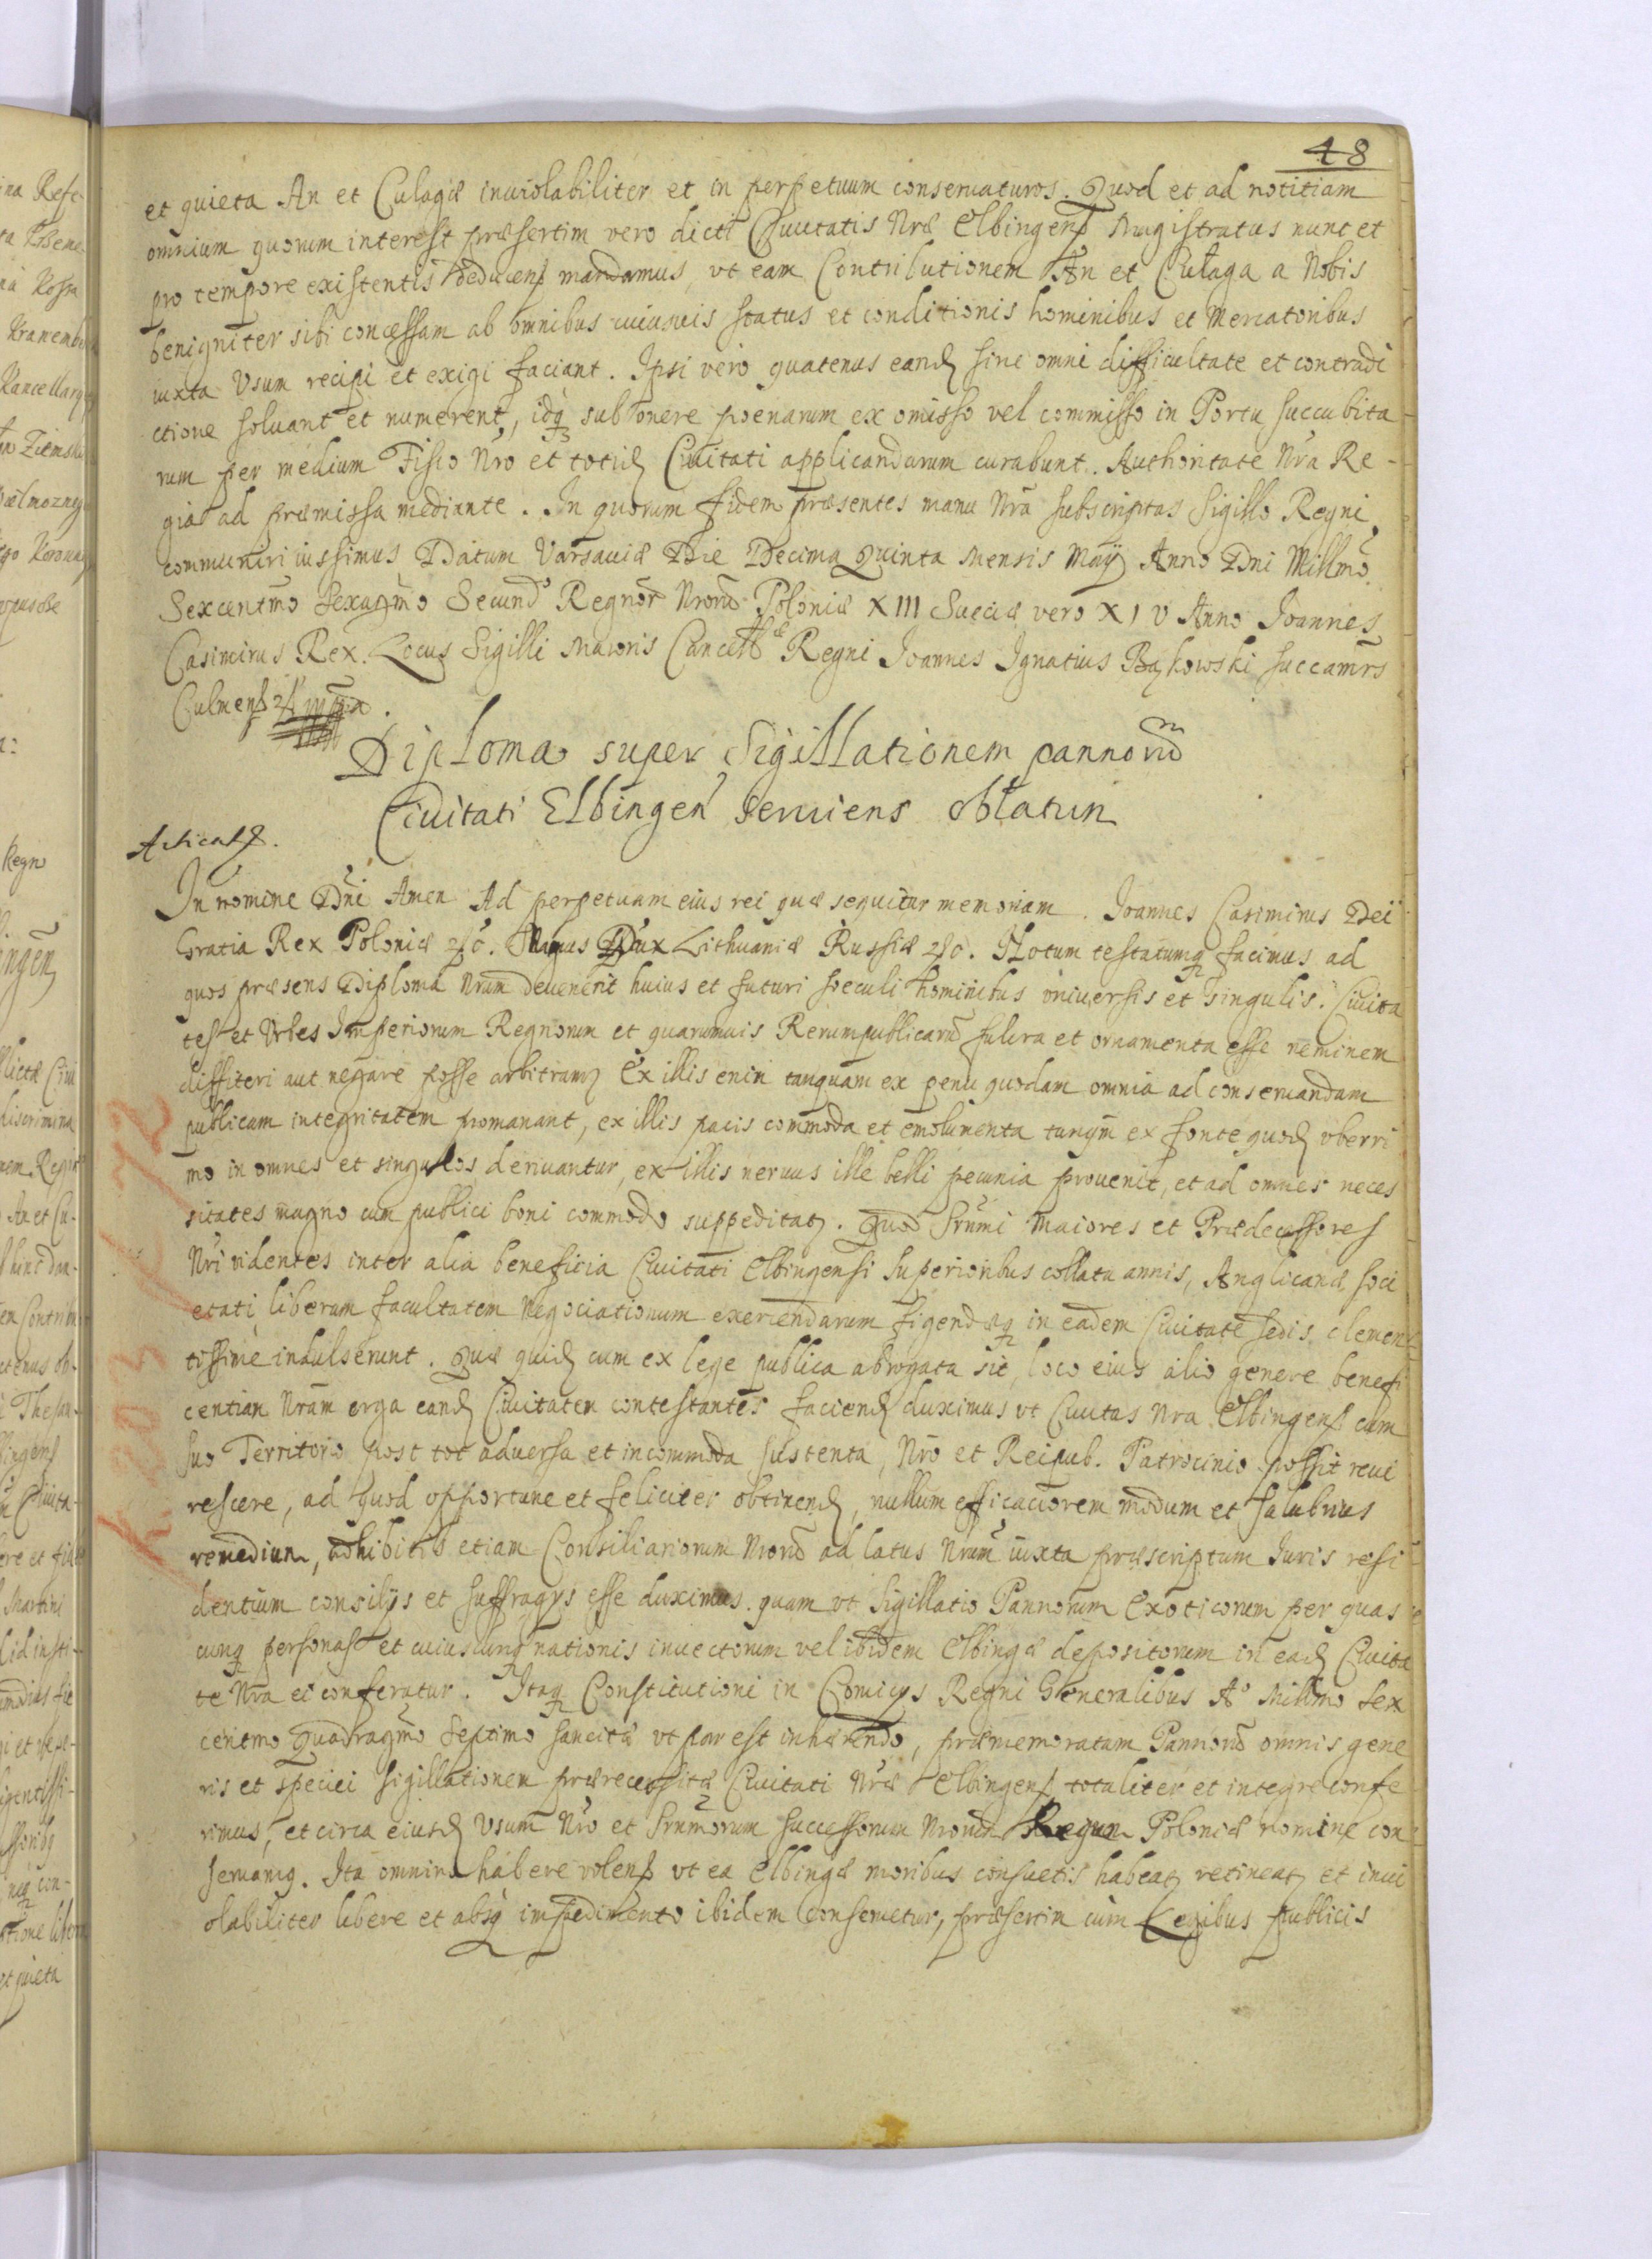 48
et quieta An et Culagæ inuiolabiliter et in perpetuum conseruaturos. Quod et ad notitiam
omnium quorum interest præsertim vero dictæ Ciuitatis Nræ Elbingens Magistratus nunc et
pro tempore existentis deducens mandamus, vt eam Contributionem An et Culaga a Nobis
benigniter sibi concessam ab omnibus cuiusuis status et conditionis hominibus et Mercatoribus
iuxta Vsum recipi et exigi faciant. Ipsi vero quatenus eand sine omni difficultate et contradi
ctione soluant et numerent, idq sub onere poenarum ex omisso vel commisso in Portu succubita
rum per medium Fisco Nro et totid Ciuitati applicandarum curabunt. Authoritate Nra Re-
gia ad præmissa mediante. In quorum fidem præsentes manu Nra subscriptas Sigillo Regni
communiri iussimus Datum Varsauiæ Die Decima Quinta Mensis Maij Anno Dni Millmo
Sexcentmo Sexagmo Secundo Regnor Nrorū Poloniæ XIII Sueciæ vero XIV Anno Joannes
Casimirus Rex. Locus Sigilli Maioris Cancellæ Regni Joannes Ignatius Bąkowski Succamrs
Culmens
Diploma super Sigillationem pannorū
Ciuitati Elbingen seruiens oblatum
Acticat.
In nomine Dni Amen Ad perpetuam eius rei quæ sequitur memoriam. Joannes Casimirus Dei
Gratia Rex Poloniæ Magnus Dux Lithuaniæ Russiæ Notum testatumq facimus ad
quos præsens Diploma Nrum deuenerit huius et futuri soeculi hominibus vniuersis et singulis. Ciuita
tes et Vrbes Imperiorum Regnorum et quarumuis Rerumpublicarū fulcra et ornamenta esse neminem
diffiteri aut negare posse arbitramr Ex illis enim tanquam ex penu quodam omnia ad conseruandam
publicam integritatem promanant, ex illis pacis commoda et emolumenta tanqm ex fonte quod vberri
mo in omnes et singulos deriuantur, ex illis neruus ille belli pecunia prouenit, et ad omnes neces
sitates magno cum publici boni commodo suppeditatr. Quod Srnmi Maiores et Prædecessores
Nri videntes inter alia beneficia Ciuitati Elbingensi superioribus collata annis, Anglicanæ soci
etati liberam facultatem negociationum exercendarum figendæq in eadem Ciuitate sedis, clemen
tissime indulserunt. Quæ quid cum ex lege publica abrogata sit, loco eius alio genere benefi
centiam Nram erga eand Ciuitatem contestantes faciend duximus vt Ciuitas Nra Elbingens cum
suo Territorio post tot aduersa et incommoda sustenta, Nro et Reipub. Patrocinio possit reui
rescere, ad quod opportune et feliciter obtinend, nullum efficaciorem modum et salubrius
remedium, adhibitis etiam Consiliariorum Nrorū ad latus Nrum iuxta præscriptum Iuris resi
dentium consilijs et suffragys esse duximus. quam vt Sigillatio Pannorum Exoticorum per quas
cunq personas et cuiuscunq nationis inuectorum vel ibidem Elbingæ depositorum in ead Ciuita
te Nra ei conferatur. Itaq Constitutioni in Comicys Regni Generalibus Ao Millmo Sex
centmo Quadragmo Septimo sancitæ vt par est inhærendo, præmemoratam Pannorū omnis gene
ris et speciei sigillationem prærecensitæ Ciuitati Nræ Elbingens totaliter et integre confe
rimus, et circa eiusd Vsum Nro et Srnmorum successorum Nrorum Regum Poloniæ nomine con
seruamq. Ita omnino habere volens vt ea Elbingæ moribus consuetis habeatr retineatr et inui
olabiliter libere et absq impedimento ibidem conseruetur, præsertim cum Legibus publicis